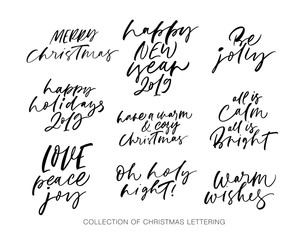 MERRY
Christmas
happy
NEW
year
2019
Be
jolly
happy
holidays
2019
have a warm
& cozy
Christmas
all is
Calm
all is
Bright
LOVE
peace
joy
oh holy
night!
warm
wishes
COLLECTION OF CHRISTMAS LETTERING